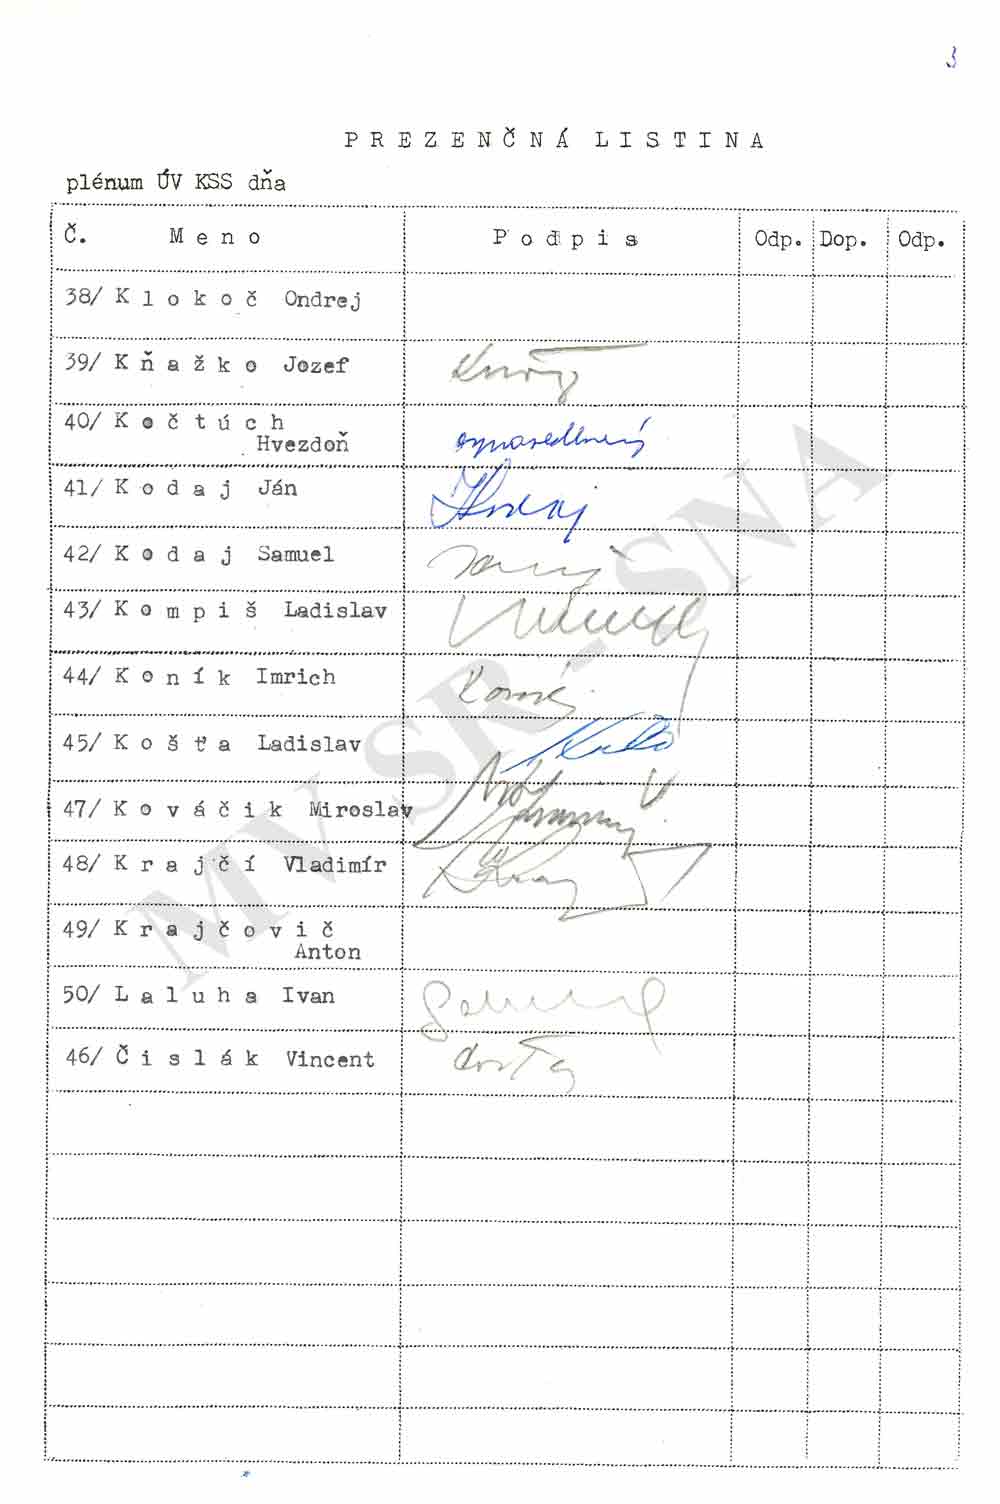 3
PREZENČNÁ LISTINA
plénum ÚV KSS dňa
Č. Meno Podpis Odp. Dop. Odp.
38/ Klokoč Ondrej
39/ Kňažko Jozef
40/ Kočtúch
Hvezdoň ospravedlnený
41/ Kodaj Ján Kodaj
42/ Kodaj Samuel
43/ Kompiš Ladislav
44/ Koník Imrich
45/ Košťa Ladislav
47/ Kováčik Miroslav
48/ Krajčí Vladimír
49/ Krajčovič
Anton
50/ Laluha Ivan
46/ Čislák Vincent
MV SR - SNA